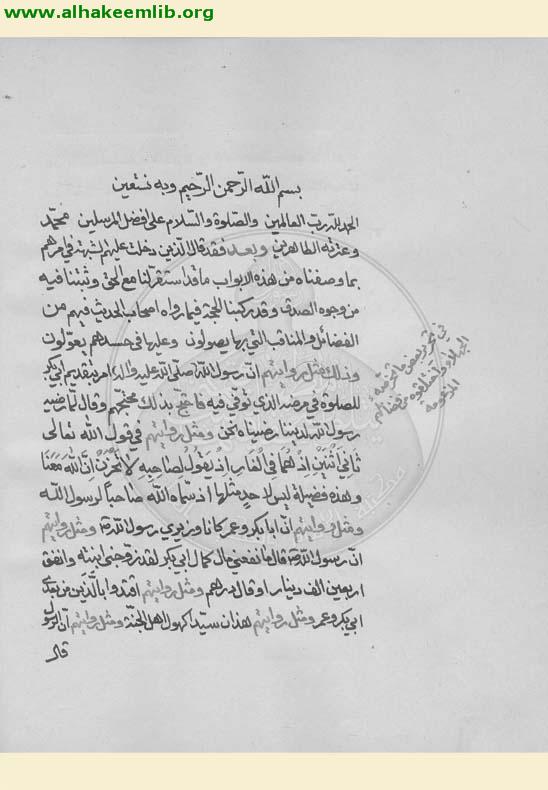 www.alhakeemlib.org
بسم الله الرحمن الرحيم وبه نستعين
الحمد لله رب العالمين والصلوة والسلام على افضل المرسلين محمد
وعترته الطاهرين وبعد فقد قال الذين دخلت عليهم الشبهة في امرهم
بما وصفناه من هذه الابواب ما قد استقر لنا مع الحق وثبتنا فيه
من وجوه الصدق وقد ركبنا للحجة فيما رواه اصحاب الحديث فيهم من
الفضائل والمناقب التي بها يصولون وعليها في حسدهم يعولون
وذلك مثل روايتهم ان رسول الله صلى الله عليه واله امر بتقديم ابي بكر
للصلوة في مرضه الذي توفي فيه فاحتج بذلك محتجهم وقال لما رضيه
رسول الله لديننا رضيناه نحن ومثل روايتهم في قول الله تعالى
ثاني اثنين اذ هما في الغار اذ يقول لصاحبه لا تحزن ان الله معنا
وهذه فضيلة ليس لاحد مثلها اذ سماه الله صاحبا لرسول الله
ومثل روايتهم ان ابا بكر وعمر كانا وزيري رسول الله ص ومثل روايتهم
ان رسول الله ص قال ما نفعني مال كمال ابي بكر لقد زوجني ابنته وانفق
اربعين الف دينار او قال درهم ومثل روايتهم اقتدوا بالذين من بعدي
ابي بكر وعمر ومثل روايتهم هذان سيدا كهول اهل الجنة ومثل روايتهم ان الرسول
قال